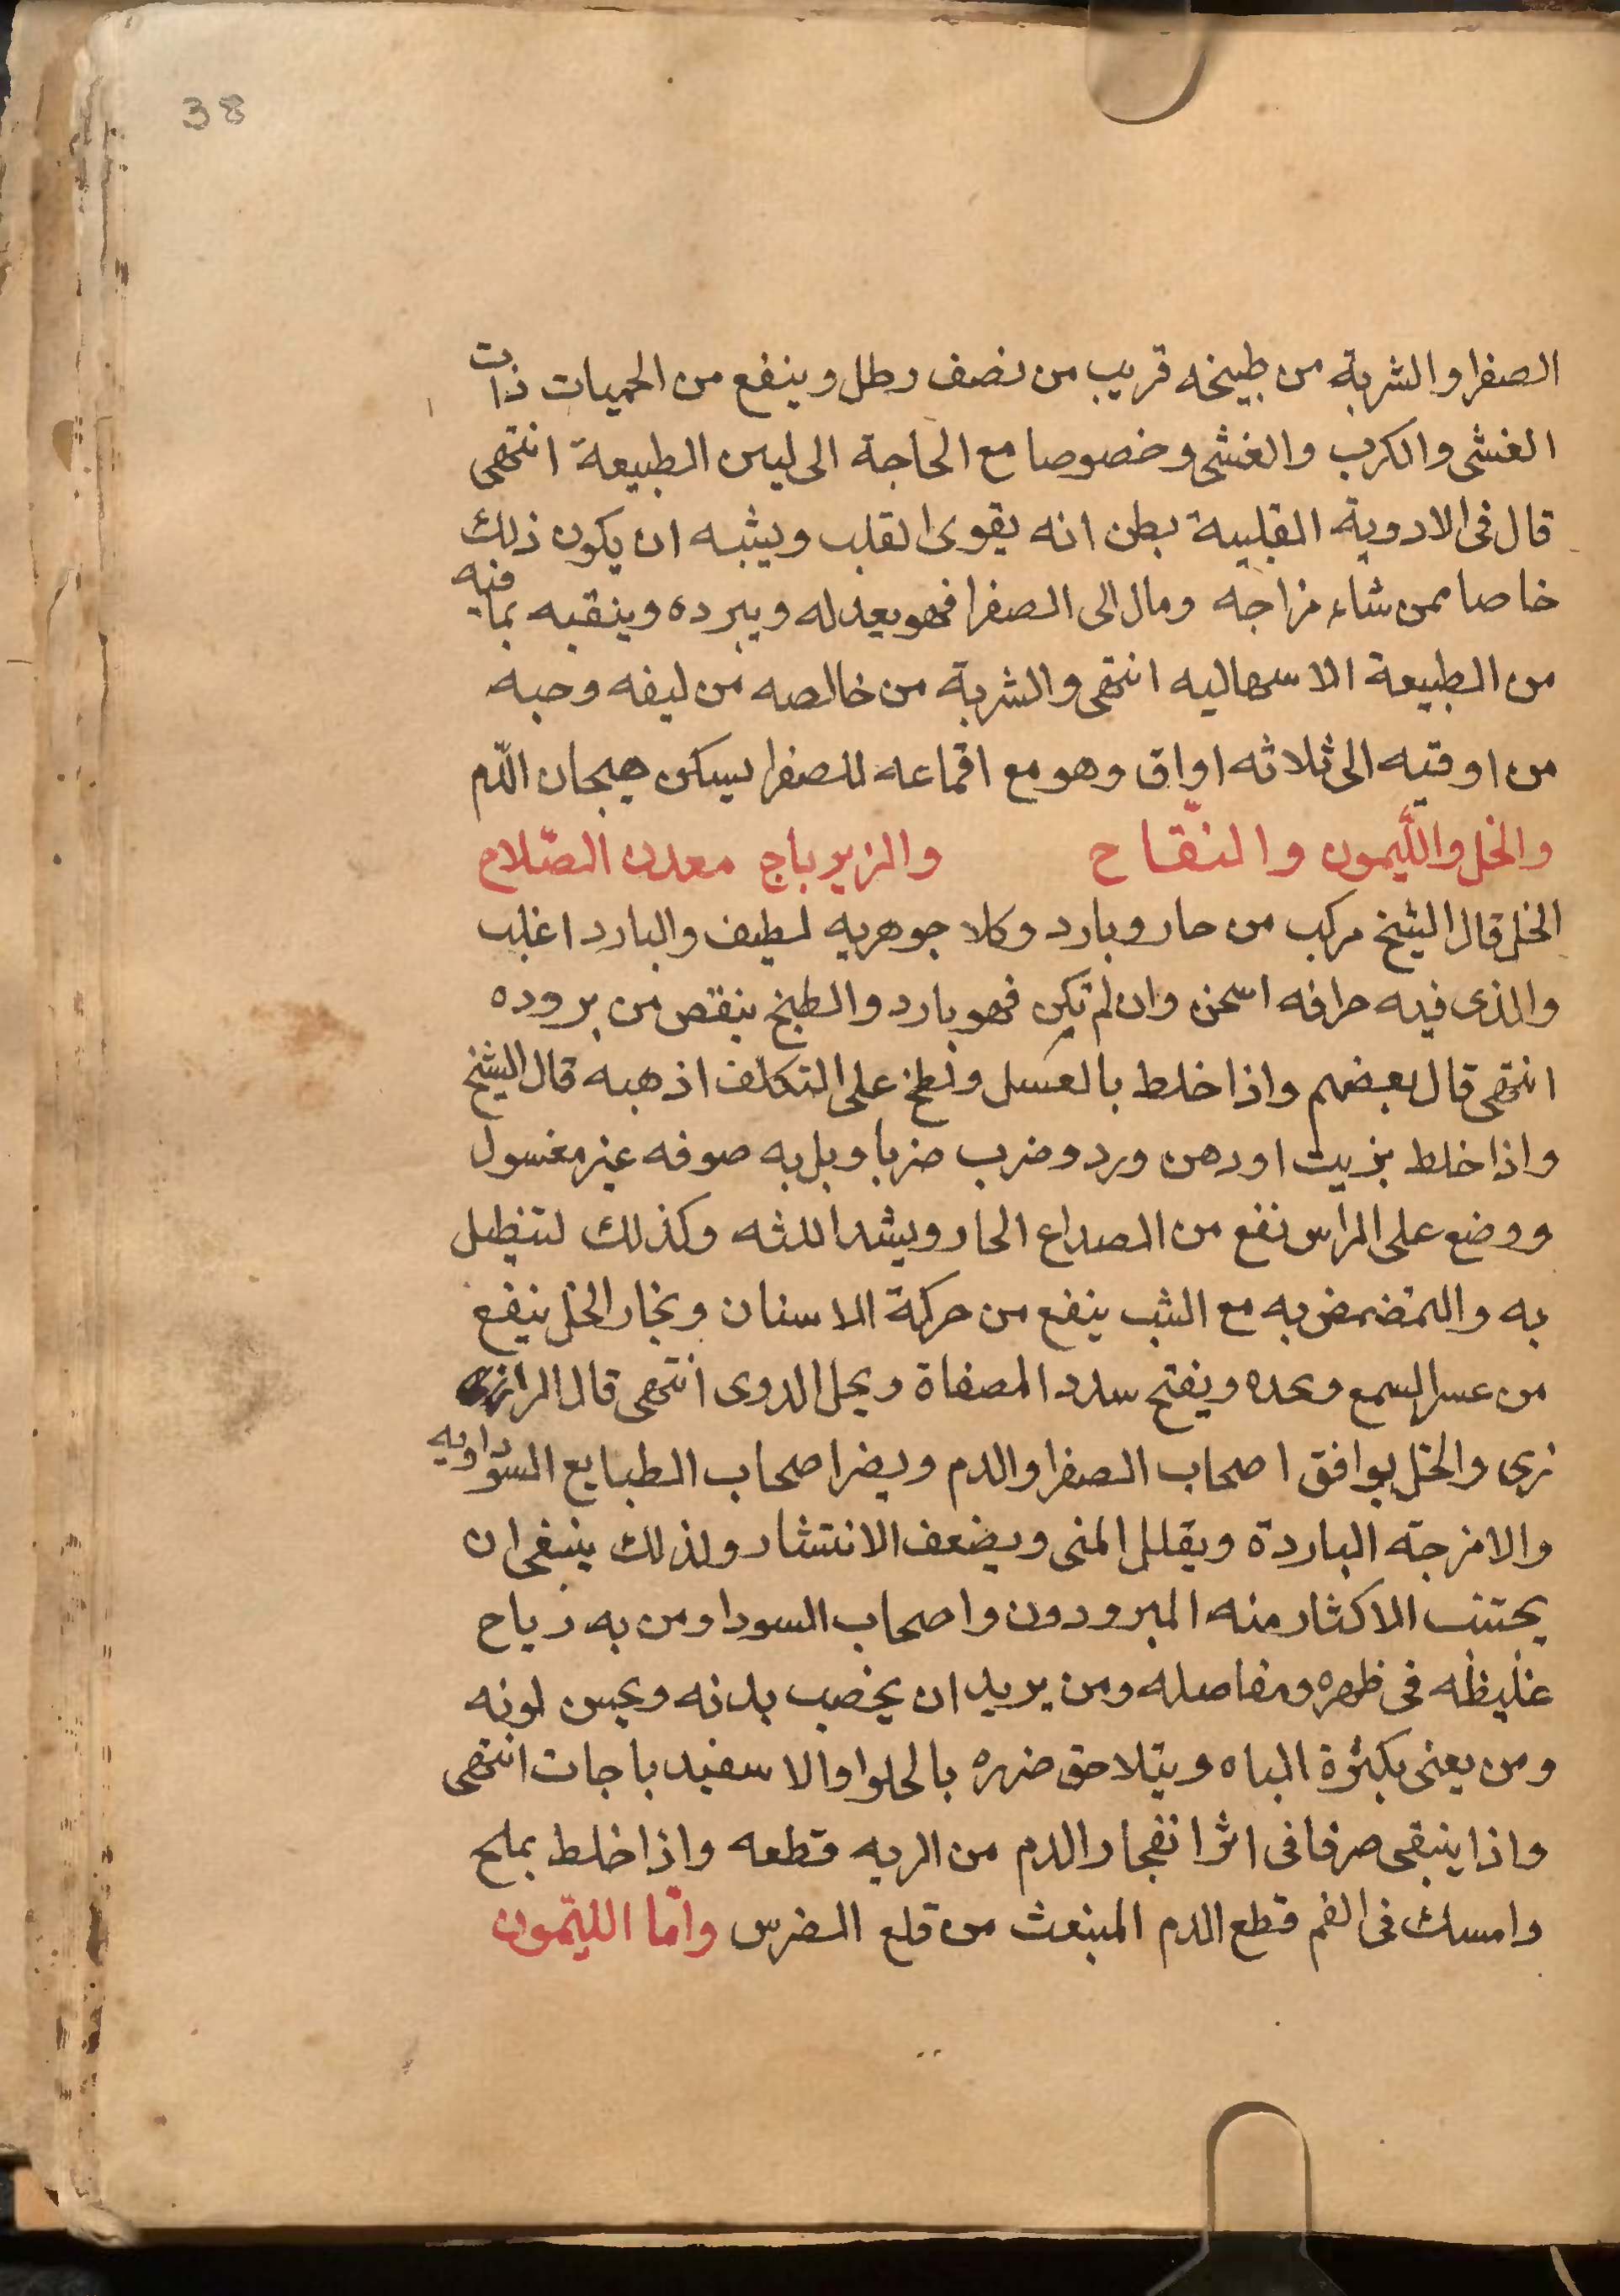 38
الصفرا والشربة من طبيخه قريب من نصف رطل وينفع من الحميات ذات
الغشى والكرب والغشى وخصوصا مع الحاجة الى ليس الطبيعة انتهى
قال فى الادوية القلبية بطن انه يقوى القلب ويشبه ان يكون ذلك
خاصا ممن شاء مزاجه ومال الى الصفرا فهو يعدله ويبرده وينقبه بما فيه
من الطبيعة الاسهاليه انتهى والشربة من خالصه من ليفه وحبه
من اوقيه الى ثلاثه اواق وهو مع اقماعه للصفرا يسكن هيجان الدّم
والخل والليمون والنقّاح والزيرباج معدن الصّلاح
الخل قال الشيخ مركب من حار وبارد وكلا جوهريه لطيف والبارد اغلب
والذى فيه حرافه اسخن وان لم تكن فهو بارد والطبخ ينقص من بروده
انتهى قال بعضهم واذا خلط بالعسل ولطخ على التكلف اذهبه قال الشيخ
واذا خلط بزيت او دهن ورد وضرب ضربا وبل به صوفه غير مغسول
ووضع على الراس نفع من الصداع الحار ويشد اللثه وكذلك لتنطيل
به والتمضمض به مع الشب ينفع من حركة الاسنان وبخار الخل ينفع
من عسر السمع وبحده ويفتح سدد المصفاة ويحل الدوى انتهى قال الرازى
نرى والخل يوافق اصحاب الصفرا والدم ويضر اصحاب الطبايع السوداويه
والامزجة الباردة ويقلل المنى ويضعف الانتشار ولذلك ينبغى ان
يجتنب الاكثار منه المبرودون واصحاب السودا ومن به رياح
غليظه فى ظهره ومفاصله ومن يريد ان يخصب بدنه ويحسن لونه
ومن يعنى بكثرة الباه ويتلاحق ضرره بالحلوا والاسفيد باجات انتهى
واذا ينبقى صرفا فى اثر انفجار الدم من الريه قطعه واذا خلط بملح
وامسك فى الفم قطع الدم المنبعث من قلع الضرس وامّا الليّمون